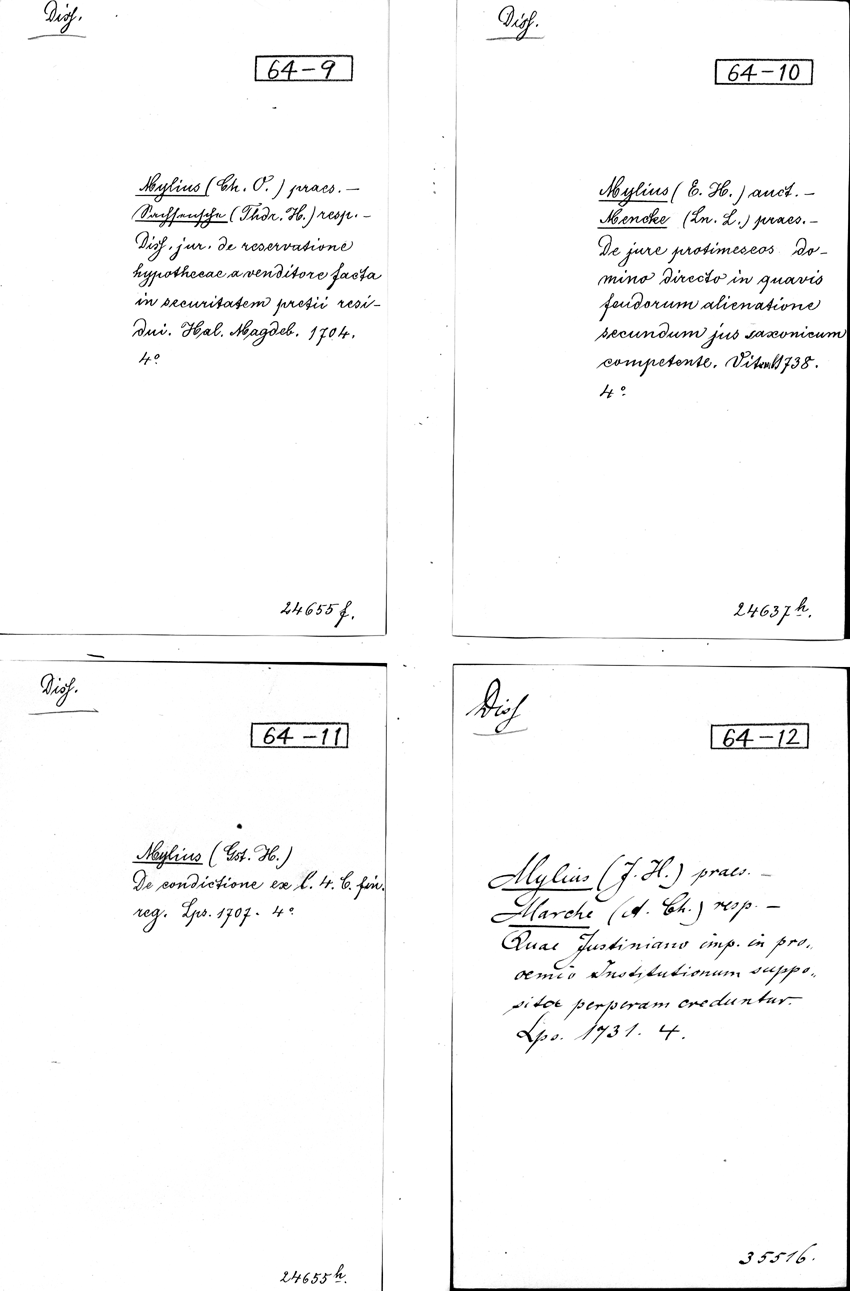 Diss.
64-9
Mylius (Ch. O.) praes. –
(Thdr. H.) resp. –
Diss. jur. de reservatione
hypothecae a venditore facta
in securitatem pretii resi-
dui. Hal. Magdeb. 1704.
4°
24655 f.
Diss.
64-10
Mylius (E. H.) auct. –
Mencke (Ln. L.) praes. –
De jure protimeseos do-
mino directo in quavis
feudorum alienatione
secundum jus saxonicum
competente. 1738.
4°
24637 h.
Diss.
64-11
Mylius (Gst. H.)
De condictione ex l. 4. C. fin.
reg. Lps. 1707. 4°
24655 h.
Diss
64-12
Mylius (J. H.) praes. –
Marche (A. Ch.) resp. –
Quae Justiniano imp. in pro„
oemio Institutionum suppo„
sitae perperam creduntur.
Lps. 1731. 4.
35516.